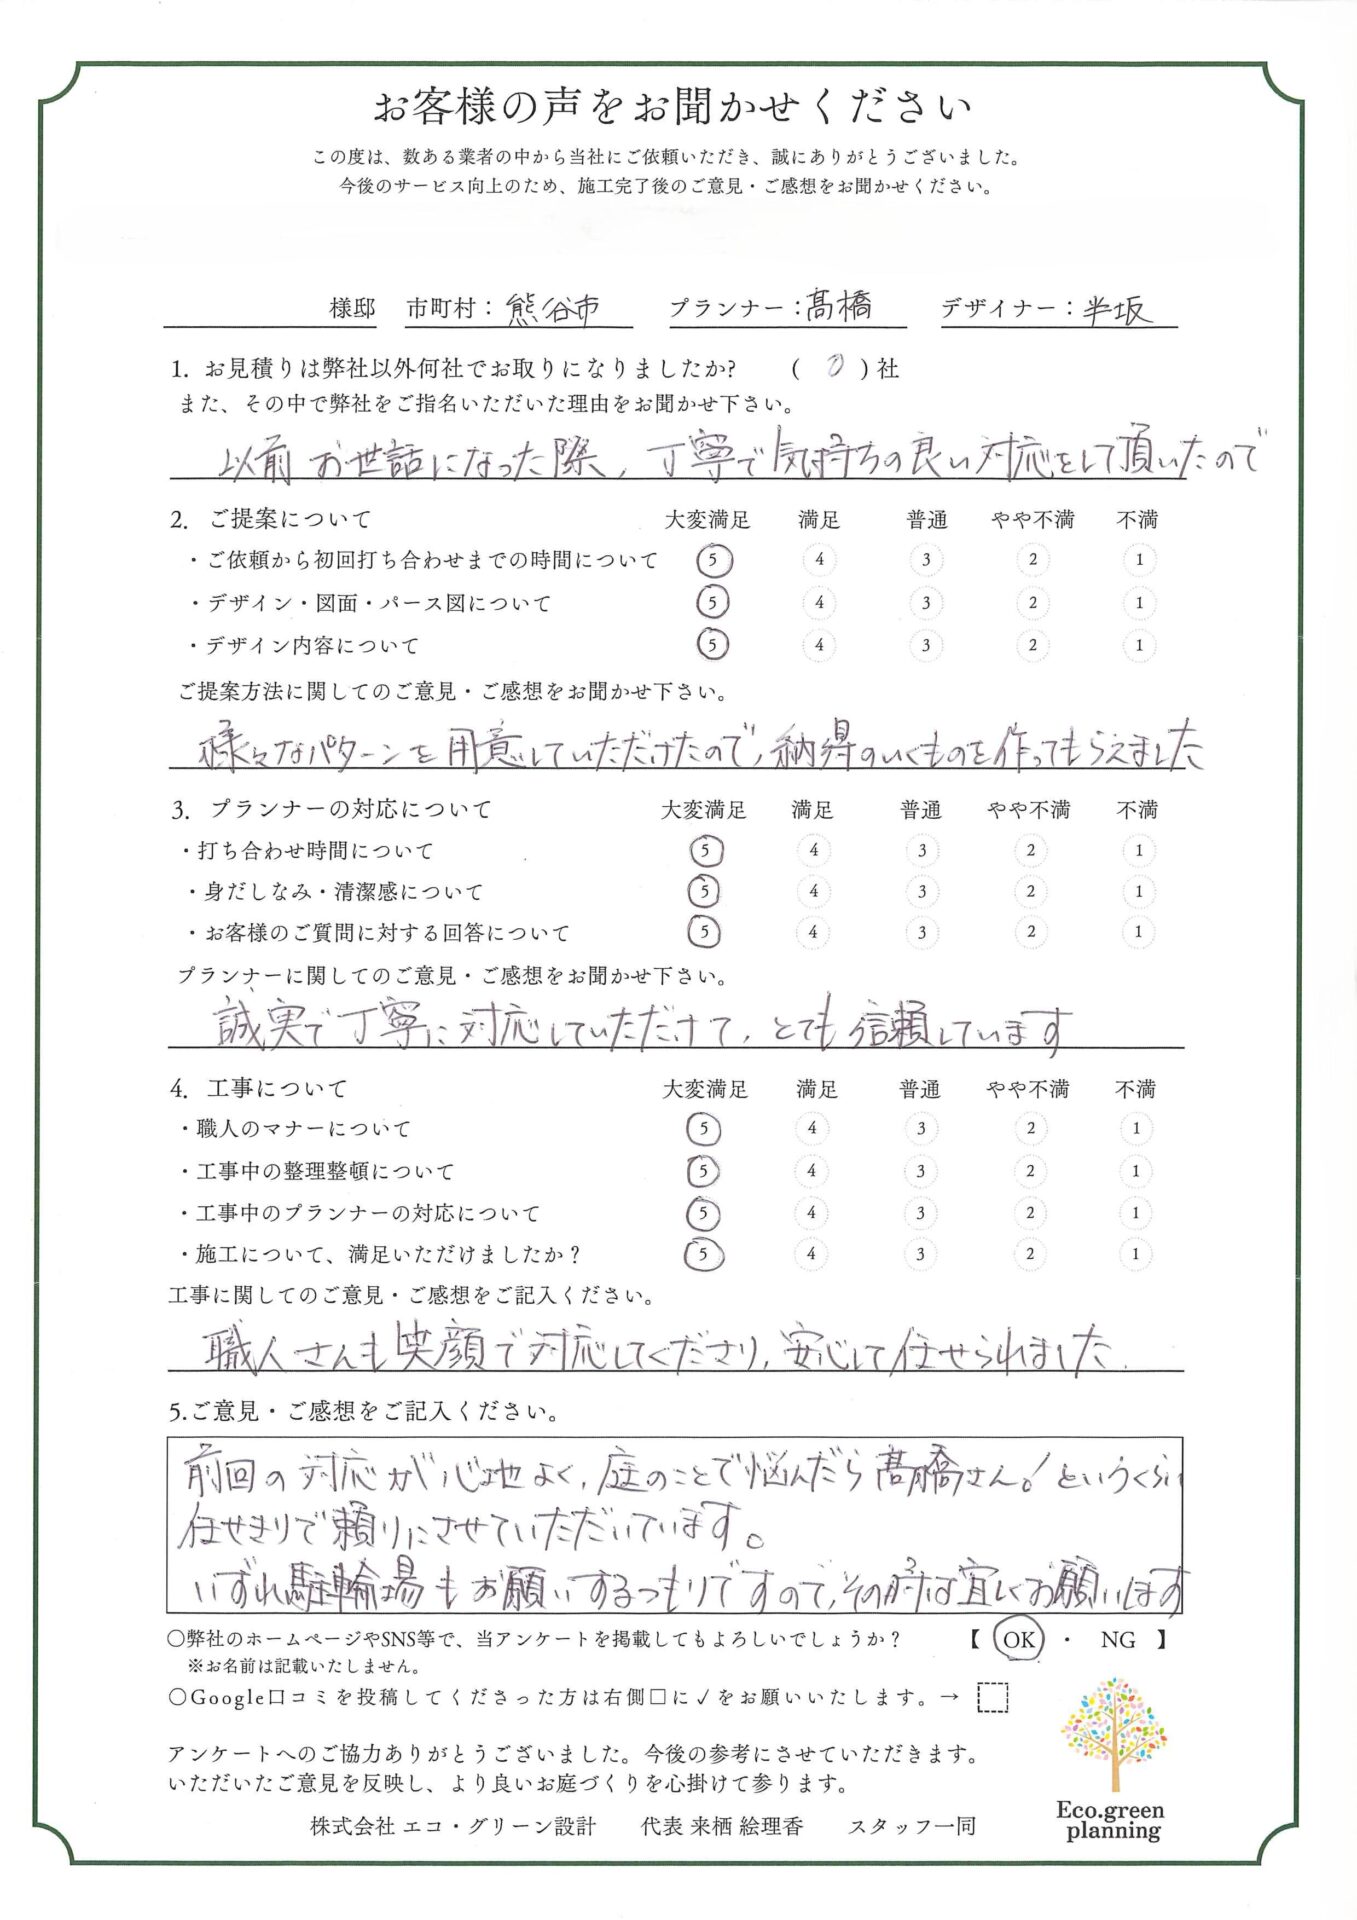 お客様の声をお聞かせください
この度は、数ある業者の中から当社にご依頼いただき、誠にありがとうございました。
今後のサービス向上のため、施工完了後のご意見・ご感想をお聞かせください。
様邸 市町村：熊谷市 プランナー：髙橋 デザイナー：半坂
1. お見積りは弊社以外何社でお取りになりましたか? ( 0 ) 社
また、その中で弊社をご指名いただいた理由をお聞かせ下さい。
以前お世話になった際、丁寧で気持ちの良い対応をして頂いたので
2. ご提案について 大変満足 満足 普通 やや不満 不満
・ご依頼から初回打ち合わせまでの時間について 5 4 3 2 1
・デザイン・図面・パース図について 5 4 3 2 1
・デザイン内容について 5 4 3 2 1
ご提案方法に関してのご意見・ご感想をお聞かせ下さい。
様々なパターンを用意していただけたので、納得のいくものを作ってもらえました
3. プランナーの対応について 大変満足 満足 普通 やや不満 不満
・打ち合わせ時間について 5 4 3 2 1
・身だしなみ・清潔感について 5 4 3 2 1
・お客様のご質問に対する回答について 5 4 3 2 1
プランナーに関してのご意見・ご感想をお聞かせ下さい。
誠実で丁寧に対応していただけて、とても信頼しています
4. 工事について 大変満足 満足 普通 やや不満 不満
・職人のマナーについて 5 4 3 2 1
・工事中の整理整頓について 5 4 3 2 1
・工事中のプランナーの対応について 5 4 3 2 1
・施工について、満足いただけましたか？ 5 4 3 2 1
工事に関してのご意見・ご感想をご記入ください。
職人さんも笑顔で対応してくださり、安心して任せられました.
5.ご意見・ご感想をご記入ください。
前回の対応が心地よく、庭のことで悩んだら髙橋さん！というくらい
任せきりで頼りにさせていただいています。
いずれ駐輪場もお願いするつもりですので、その時は宜しくお願いします
○弊社のホームページやSNS等で、当アンケートを掲載してもよろしいでしょうか？ 【 OK ・ NG 】
※お名前は記載いたしません。
○Google口コミを投稿してくださった方は右側□に✓をお願いいたします。→
アンケートへのご協力ありがとうございました。今後の参考にさせていただきます。
いただいたご意見を反映し、より良いお庭づくりを心掛けて参ります。
株式会社 エコ・グリーン設計 代表 来栖 絵理香 スタッフ一同
Eco.green
planning